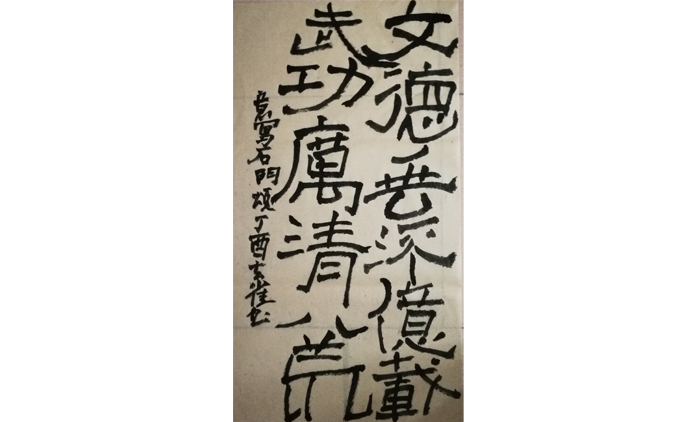 文德垂深億載
武功厲清八荒
意寫石門頌丁酉玄雀书